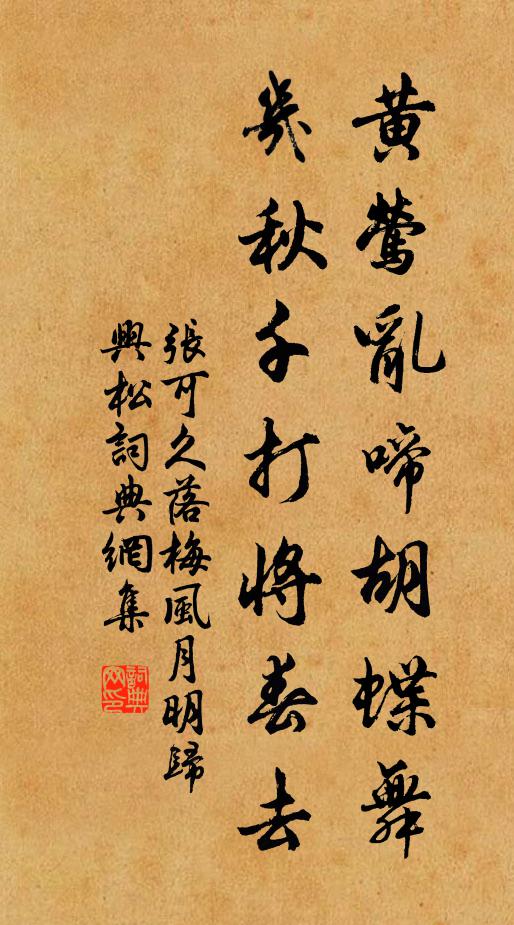 黄鶯亂啼胡蝶舞
幾秋千打將春去
張可久落梅風月明歸
興松詞典網集
詞典網印